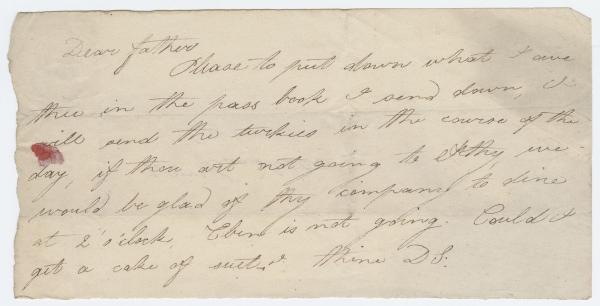 Dear father
Please to put down what I owe
thee in the pass book I send down, I
will send the turkies in the course of the
day, if thou art not going to we
would be glad of thy company to dine
at 2 o'clock, Eben is not going. Could I
get a cake of thine D S.